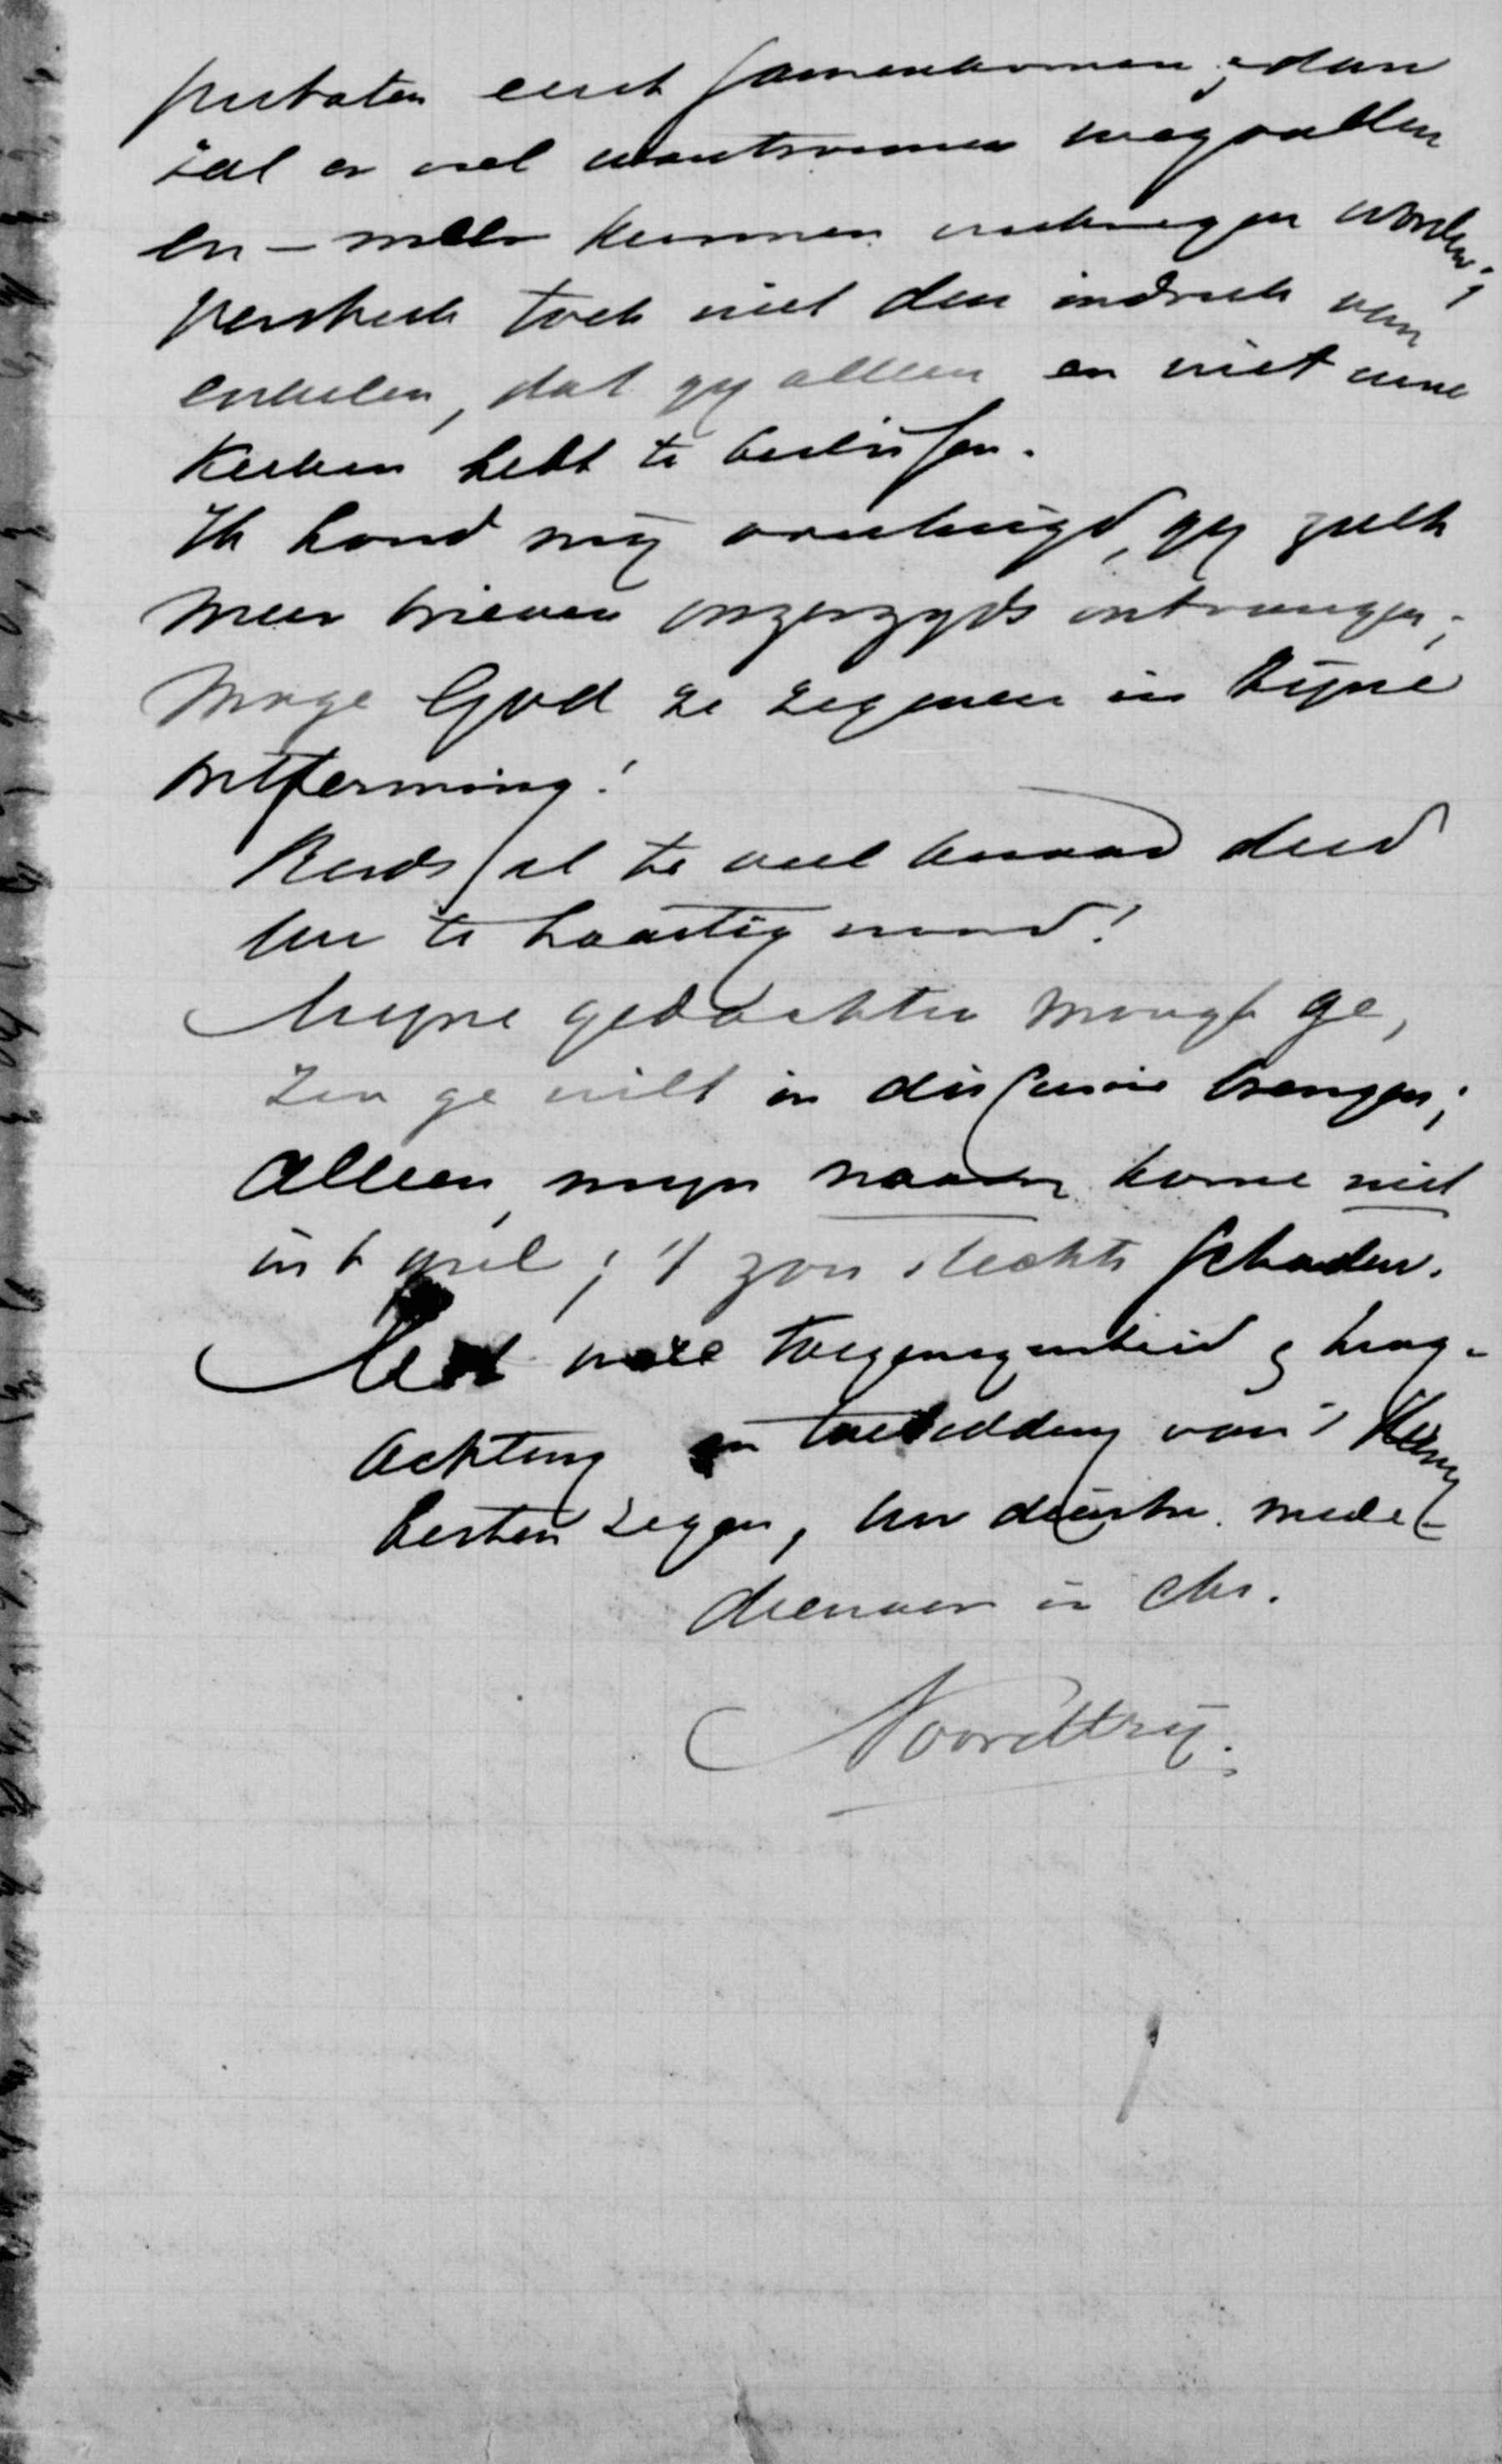 eerst samenkomen, dan
zal er veel wantrouwen wegvallen
en – meer kunnen verkregen worden;
versterk toch niet den indruk van
enkelen, dat gij alleen en niet uwe
Kerken hebt te beslissen.
Ik houd mij overtuigd, gij zult
meer brieven onzerzijds ontvangen;
Moge God ze zegenen in Zijne
ontferming!
Reeds al te veel kwaad deed
uw te haastig woord!
Mijne gedachten moogt ge,
zoo ge wilt in discussie brengen;
Alleen, mijn naam kome niet
in 't spel; 't zou slechts schaden.
Met ware toegenegenheid & hoog-
achting en toebidding van 's Heeren
besten zegen, uw dienstw. mede-
dienaar in Chr.
Noordtzij.